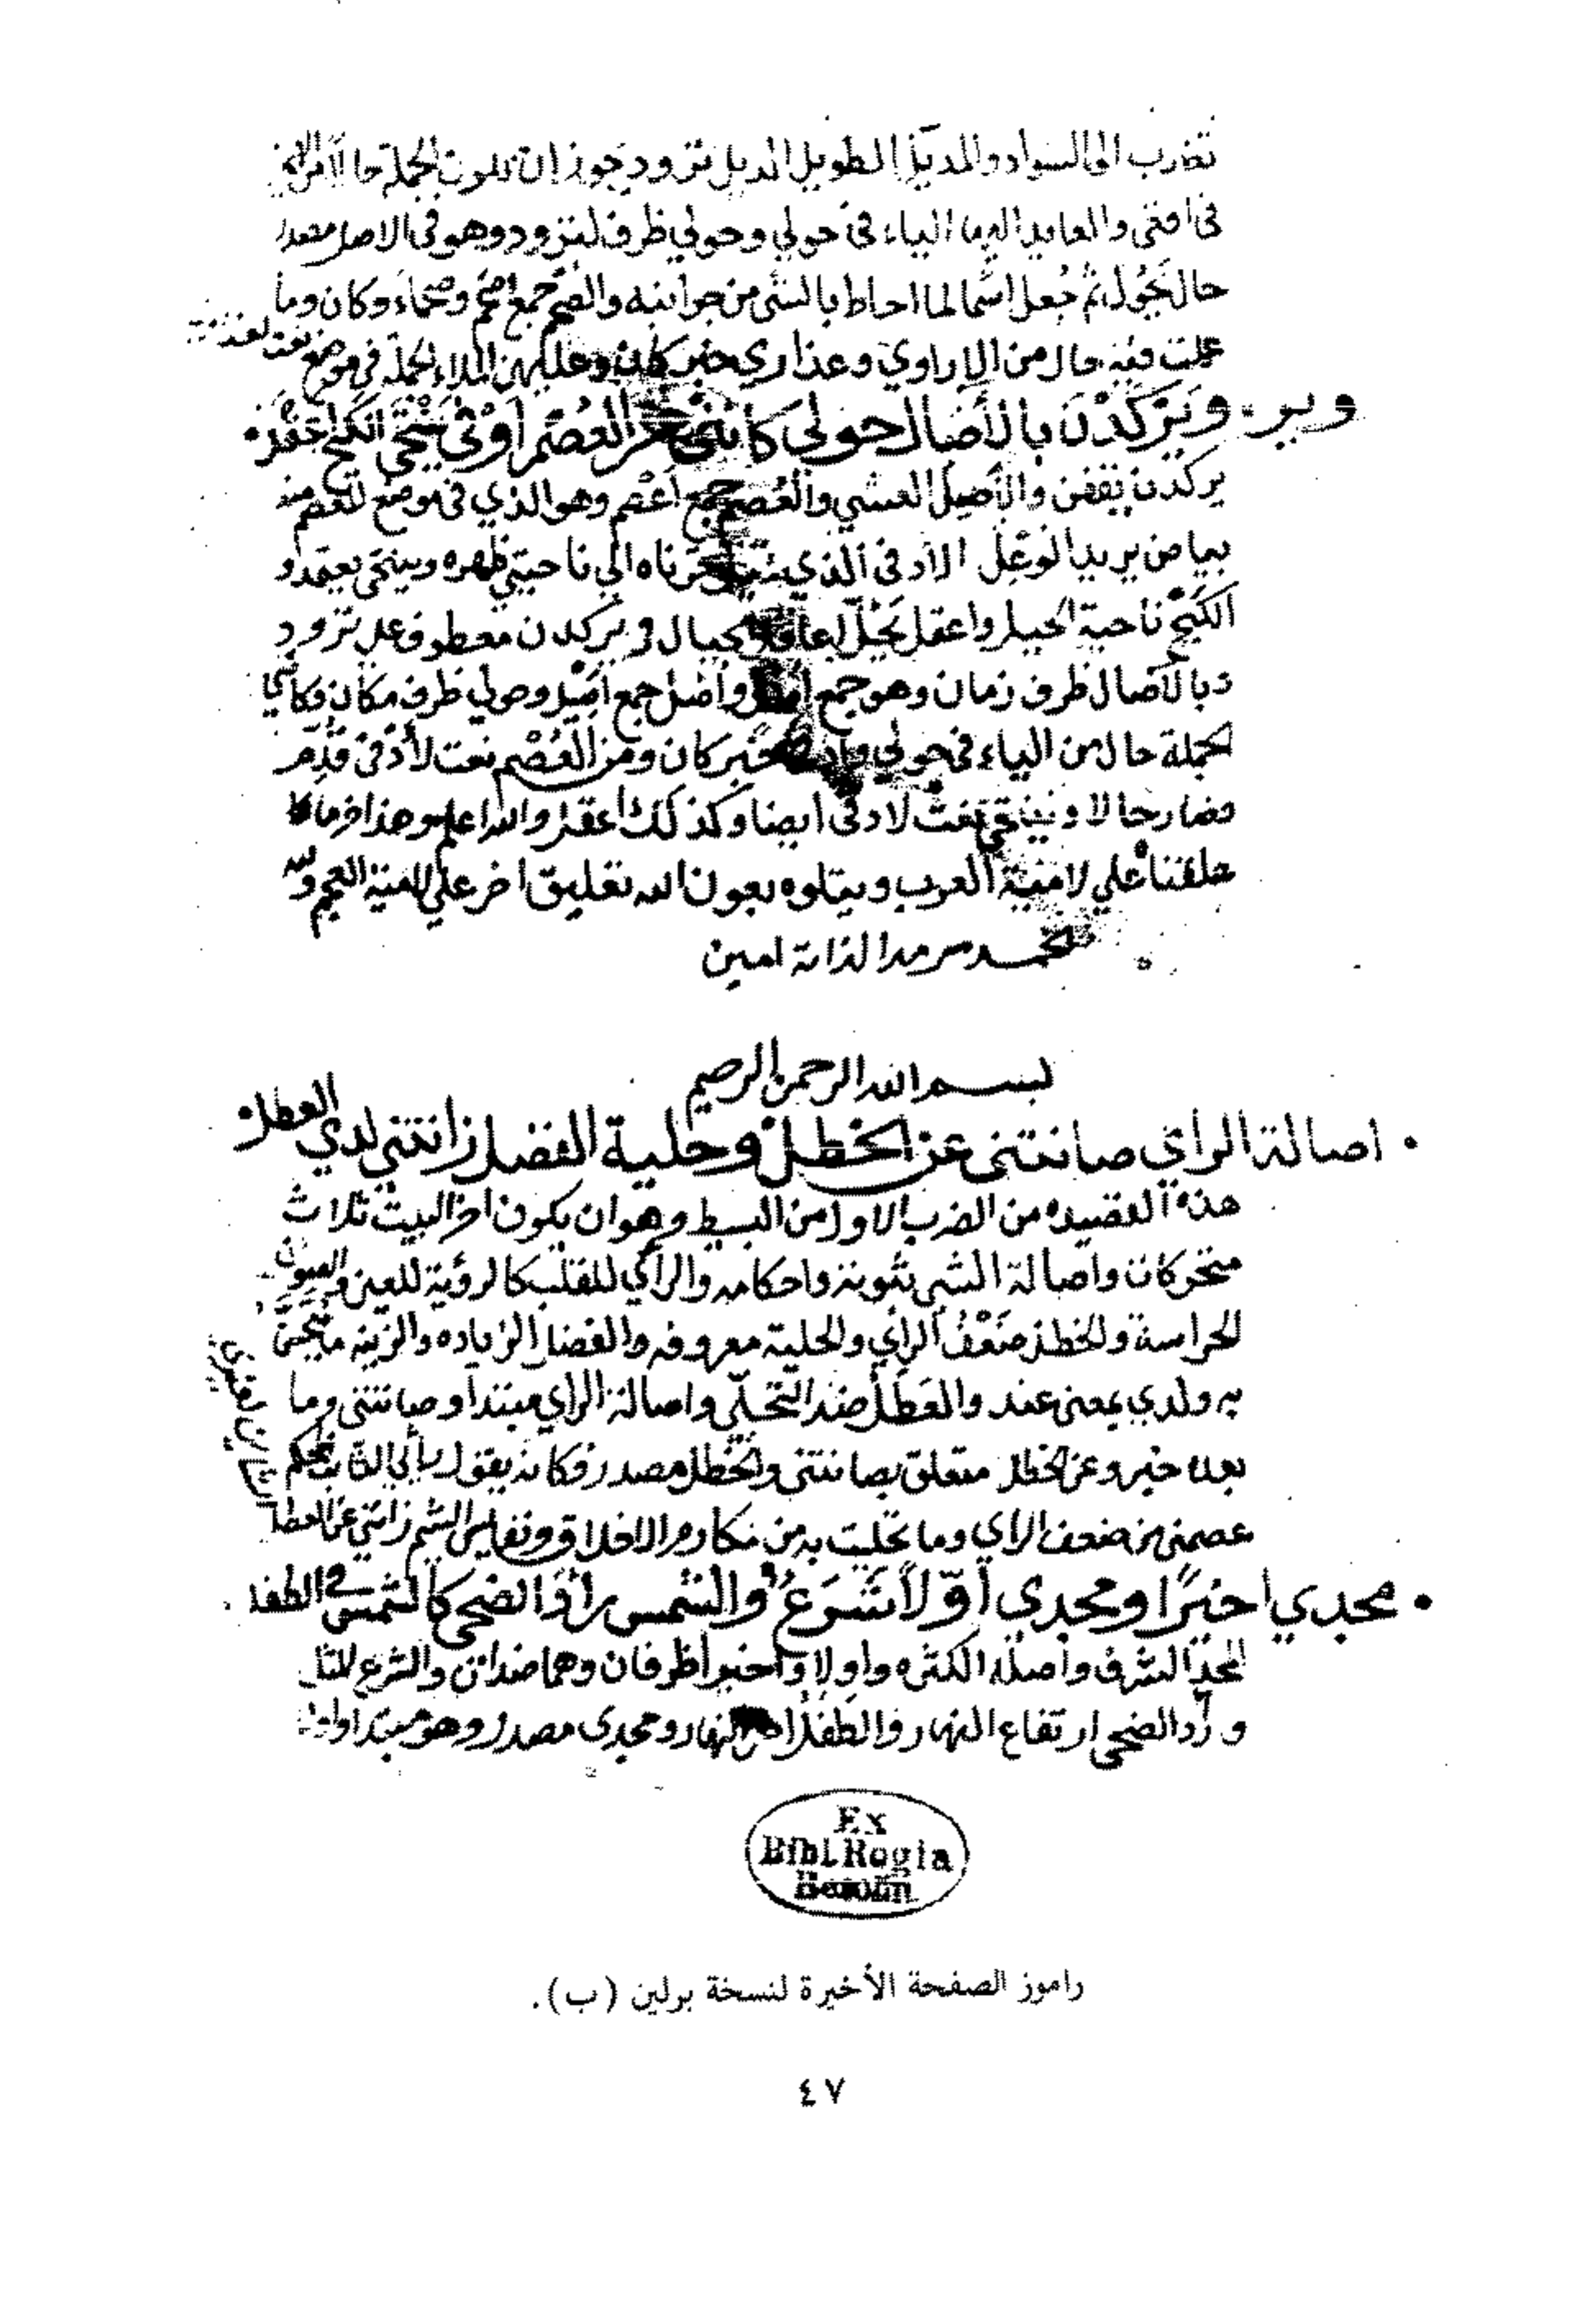 تضرب الى السواد والمذيل الطويل الذيل ترود يجوز ان تكون الجملة حالا من
في والعامل اليها الياء في حولي وحولي ظرف لترود وهو في الاصل مصدر
حال يحول ثم جعل اسما لما احاط بالشي من جوانبه والصحم جمع اصحم وصحماء وكان وما
عملت فيه حال من الاراوي وعذاري خبر كان وعليهن الملاء الجملة في موضع نعت لعذارى
ويركدن بالآصال حولي كانني من العصم ادفى ينتحي الكيح اعقل
يركدن يقفن والاصيل العشي والعصم جمع اعصم وهو الذي في موضع المعصم منه
بياض يريد الوعل الادفى الذي قرناه الى ناحيتي ظهره وينتحي يعتمد و
الكيح ناحية الجبل واعقل الجبال ويركدن معطوف على ترود
وبالآصال ظرف زمان وهو جمع واصل جمع اصيل وحولي ظرف مكان وكانني
الجملة حال من الياء في حولي وادفى خبر كان ومن العصم نعت لادفى قدم
فصار حالا وينتحي نعت لادفى ايضا وكذلك اعقل والله اعلم وهذا اخر ما
علقنا على لامية العرب ويتلوه بعون الله تعليق اخر على لامية العجم ولله
الحمد سرمدا لذاته امين
بسم الله الرحمن الرحيم
اصالة الراي صانتني عن الخطل وحلية الفضل زانتني لدي العطل
هذه القصيده من الضرب الاول من البسيط وهو ان يكون اخر البيت ثلاث
متحركات واصالة الشي ثبوته واحكامه والراي للقلب كالرؤية للعين والصون
الحراسة والخطل ضعف الراي والحلية معروفه والفضل الزياده والزينه ما يتحسن
به ولدي بمعنى عند والعطل ضد التحلي واصالة الراي مبتدا وصانتني وما
بعده خبر وعن الخطل متعلق بصانتني والخطل مصدر فكانه يقول رأيي الثابت المحكم
عصمني من ضعف الراي وما تحليت به من مكارم الاخلاق ونفايس الشيم زانني عن العطل
مجدي اخيرا ومجدي اولا شرع والشمس رأد الضحى كالشمس في الطفل
المجد الشرف واصله الكثره واولا واخيرا ظرفان وهما ضدان والشرع المثل
ورأد الضحى ارتفاع النهار والطفل اخر النهار ومجدي مصدر وهو مبتدا واولا
Ex
Bibl. Regia
Berolin
راموز الصفحة الأخيرة لنسخة برلين (ب).
٤٧